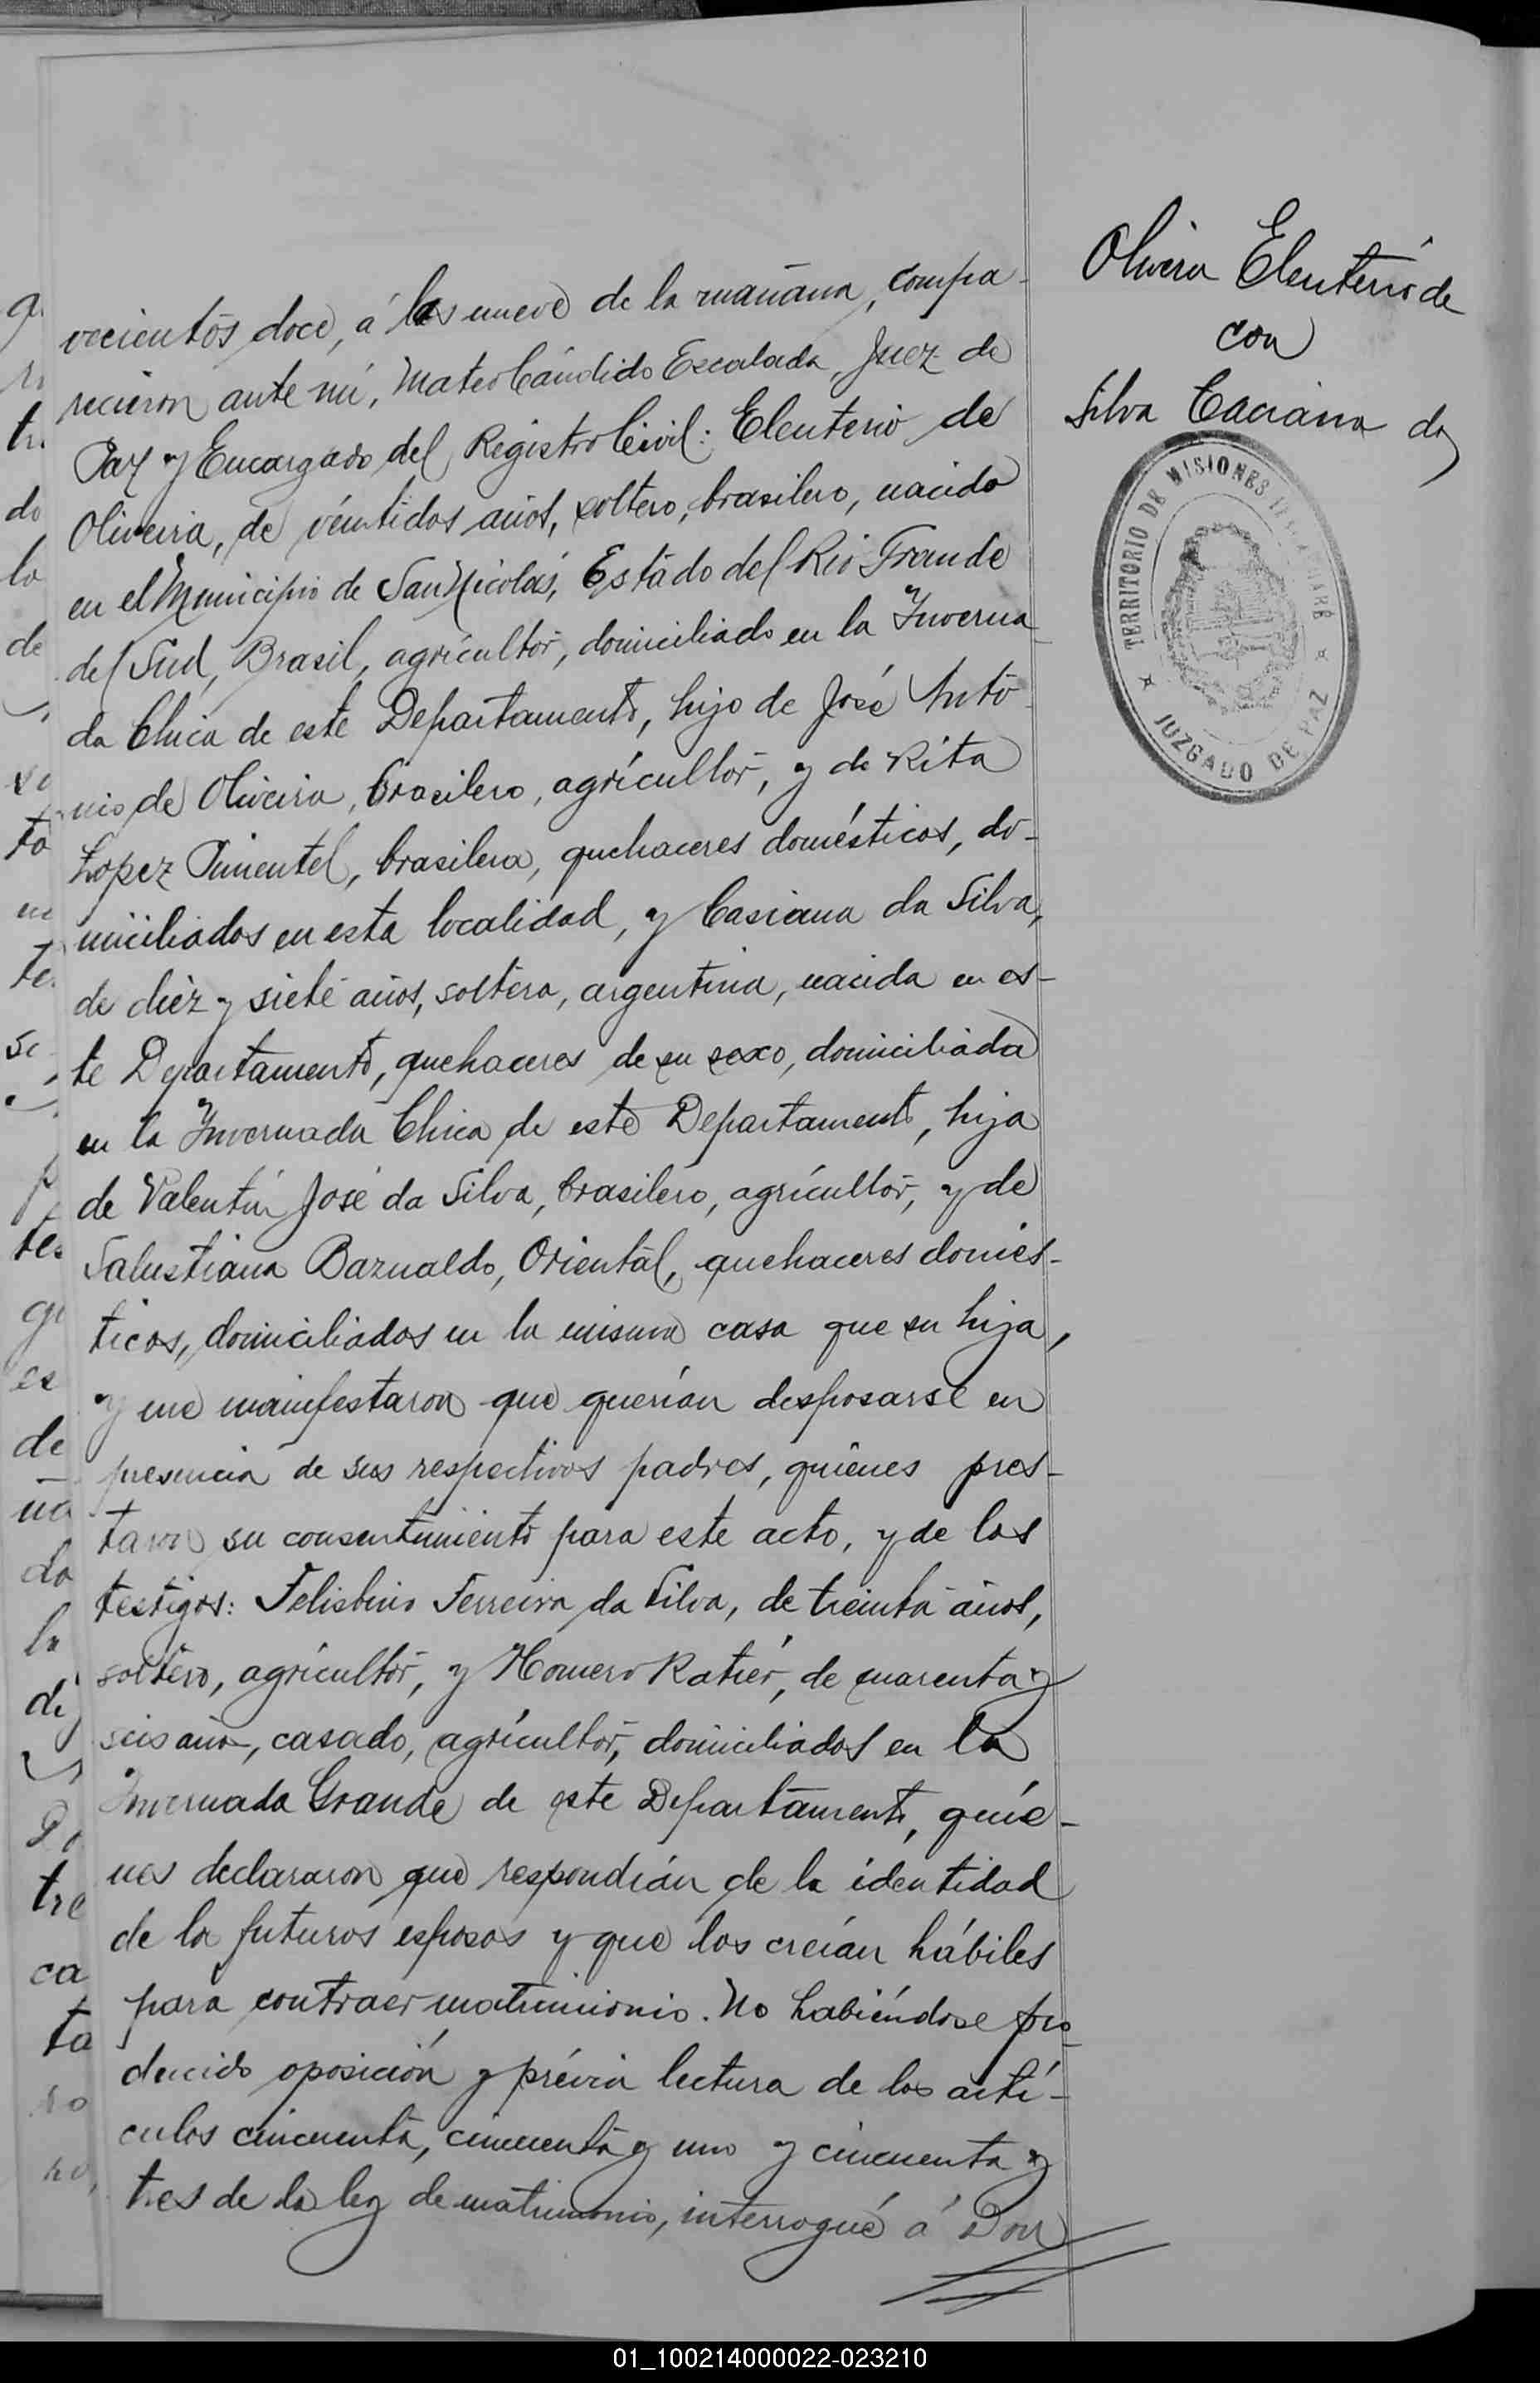 vecientos doce, á las nueve de la mañana, compa-
recieron ante mí, Mateo Cándido Escalada, Juez de
Paz y Encargado del Registro Civil: Eleuterio de
Oliveira, de véintidos años, soltero, brasilero, nacido
en el Municipio de San Nicolás, Estado del Rio Grande
del Sud, Brasil, agricultor, domiciliado en la Inverna-
da Chica de este Departamento, hijo de José Anto-
nio de Oliveira, brasilero, agricultor, y de Rita
Lopez Pimentel, brasilera, quehaceres domésticos, do-
miciliados en esta localidad, y Casiana da Silva,
de diez y siete años, soltera, argentina, nacida en es-
te Departamento, quehaceres de su sexo, domiciliada
en la Invernada Chica de este Departamento, hija
de Valentín José da Silva, brasilero, agricultor, y de
Salustiana Barnaldo, Oriental, quehaceres domés-
ticos, domiciliados en la misma casa que su hija,
y me manifestaron que querían desposarse en
presencia de sus respectivos padres, quiénes pres-
taron su consentimiento para este acto, y de los
testigos: Felisbino Ferreira da Silva, de treinta años,
soltero, agricultor, y Homero Ratier, de cuarenta y
seis año, casado, agricultor, domiciliados en la
Invernada Grande de este Departamento, quié-
nes declararon que respondían de la identidad
de lo futuros esposos y que los creían hábiles
para contraer matrimonio. No habiéndose pro-
ducido oposición y prévia lectura de los artí-
culos cincuenta, cincuenta y uno y cincuenta y
tres de la ley de matrimonio, interrogué á Don
Olivera Eleuterio de
con
Silva Caciana da
TERRITORIO DE MISIONES
JUZGADO DE PAZ
01_100214000022-023210